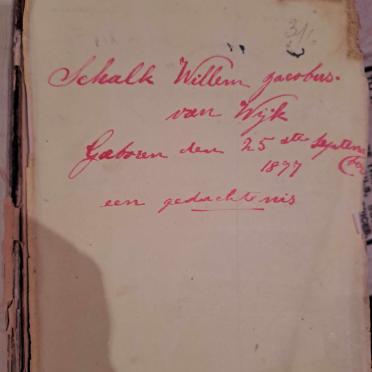 31/
Schalk Willem Jacobus.
van Wijk
Geboren den 25 ste Septem
ber
1877
een gedachtenis